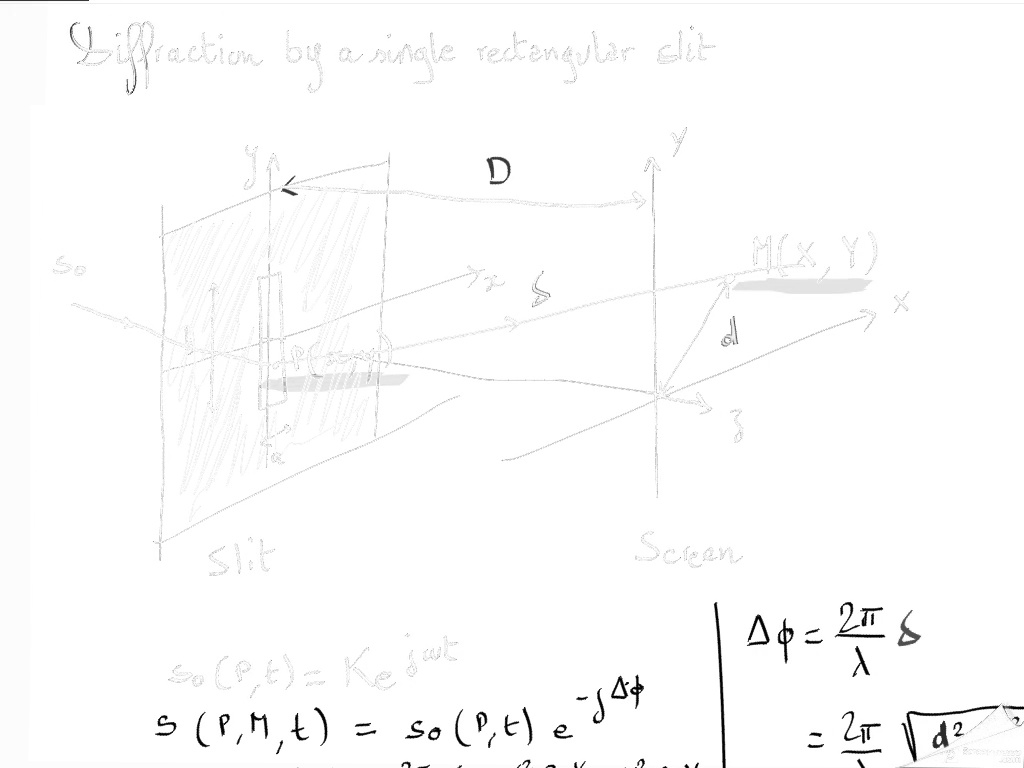 Diffraction by a single rectangular slit
y
D
Y
s₀
x
δ
M(X, Y)
b
P(x, y)
d
X
z
a
Slit
Screen
s₀(P,t) = K e^{jωt}
s(P,M,t) = s₀(P,t) e^{-jΔϕ}
Δϕ = 2π/λ δ
= 2π/λ √d²